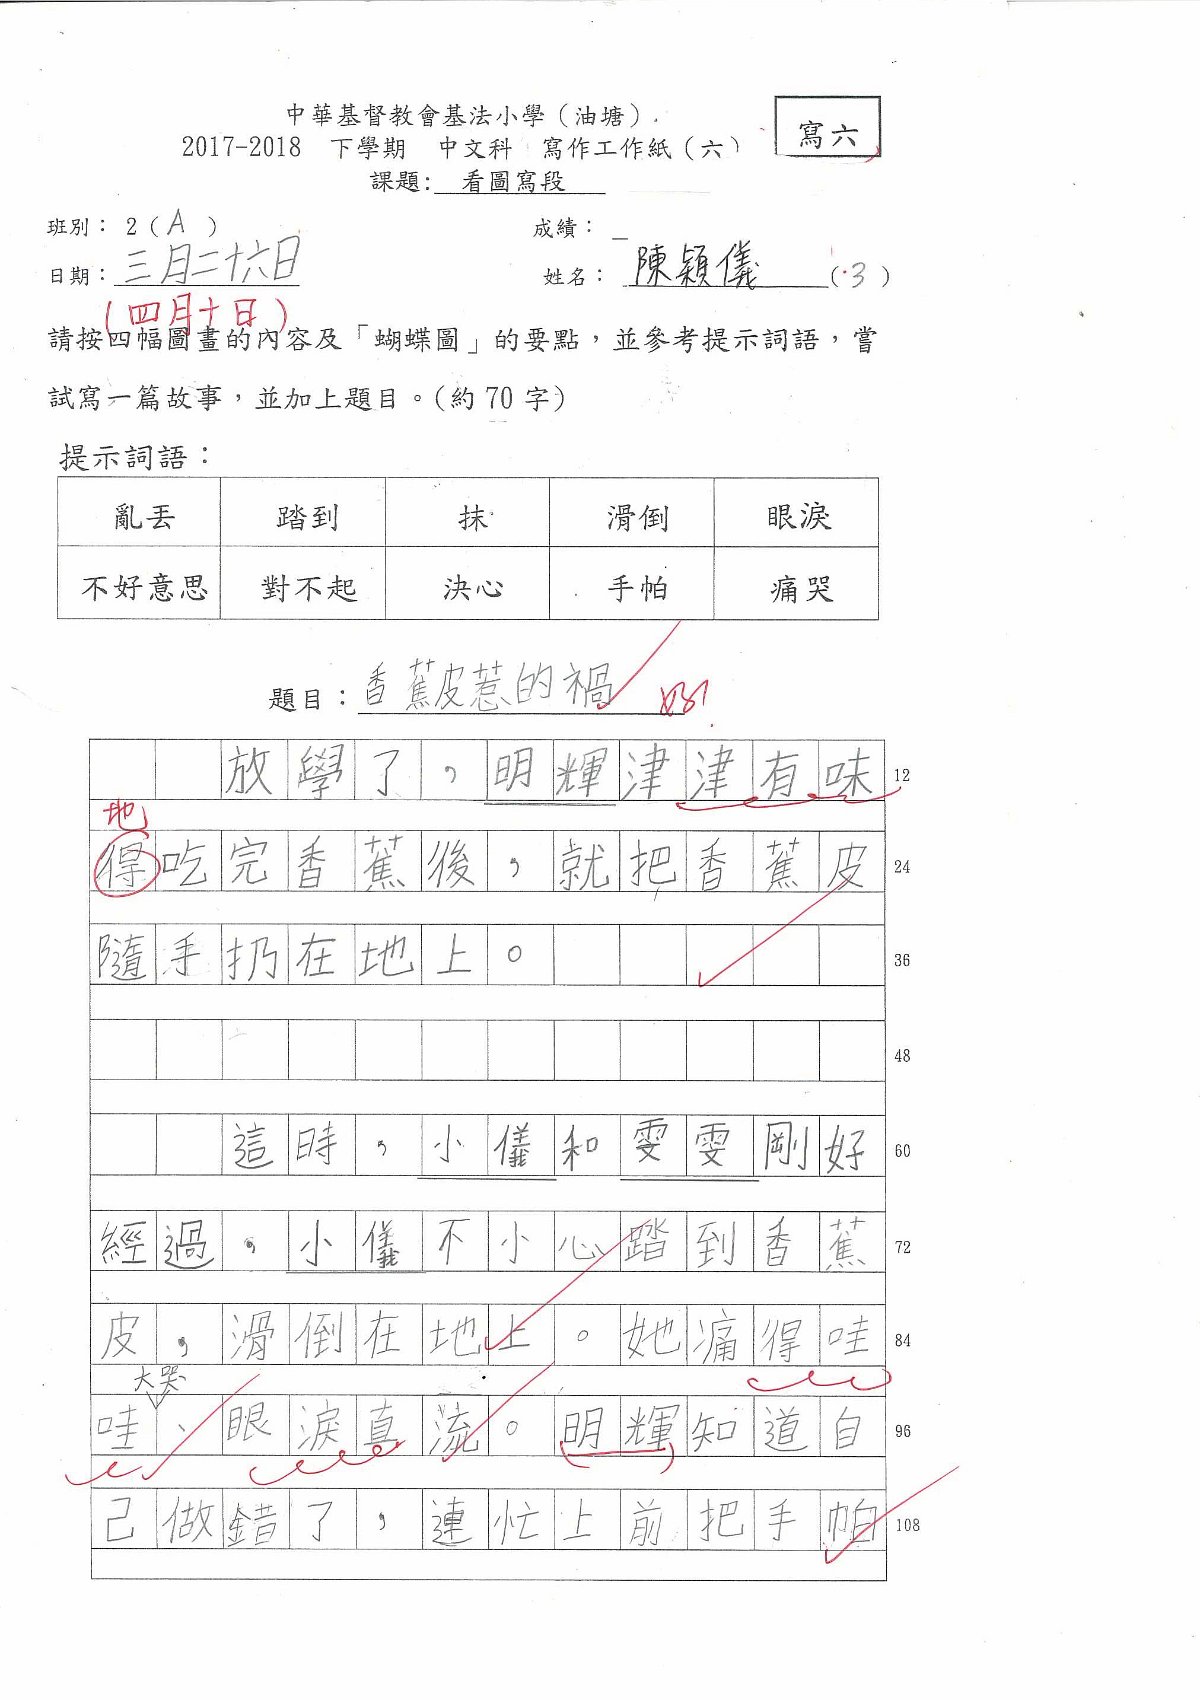 中華基督教會基法小學(油塘)
寫六
2017-2018 下學期 中文科 寫作工作紙(六)
課題: 看圖寫段
班別: 2 ( A ) 成績:
日期: 三月二十六日 姓名: 陳穎儀 (3)
(四月十日)
請按四幅圖畫的內容及「蝴蝶圖」的要點,並參考提示詞語,嘗
試寫一篇故事,並加上題目。(約 70 字)
提示詞語:
亂丟 踏到 抹 滑倒 眼淚
不好意思 對不起 決心 手帕 痛哭
題目: 香蕉皮惹的禍 好
放學了,明輝津津有味 12
地
得吃完香蕉後,就把香蕉皮 24
隨手扔在地上。 36
48
這時,小儀和雯雯剛好 60
經過,小儀不小心踏到香蕉 72
皮,滑倒在地上。她痛得哇 84
大哭
哇、眼淚直流。明輝知道自 96
己做錯了,連忙上前把手帕 108